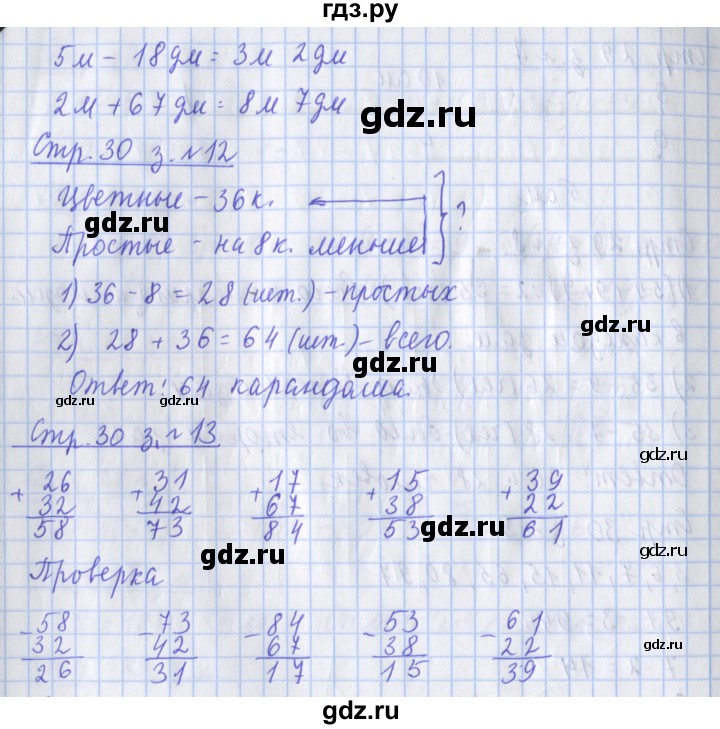 гдз.ру
5м - 18дм = 3м 2дм
2м + 67дм = 8м 7дм
gdz.ru
Стр. 30 з. №12
Цветные - 36к.
gdz.ru
Простые - на 8к. меньше ?
1) 36 - 8 = 28 (шт.) - простых
gdz.ru
2) 28 + 36 = 64 (шт.) - всего.
Ответ: 64 карандаша.
gdz.ru gdz.ru
Стр. 30 з. №13
26 31 17 15 39
+ 32 + 42 + 67 + 38 + 22
58 73 84 53 61
gdz.ru
gdz.ru
Проверка
58 73 84 53 61
- 32 - 42 - 67 - 38 - 22
26 31 17 15 39
gdz.ru gdz.ru
gdz.ru